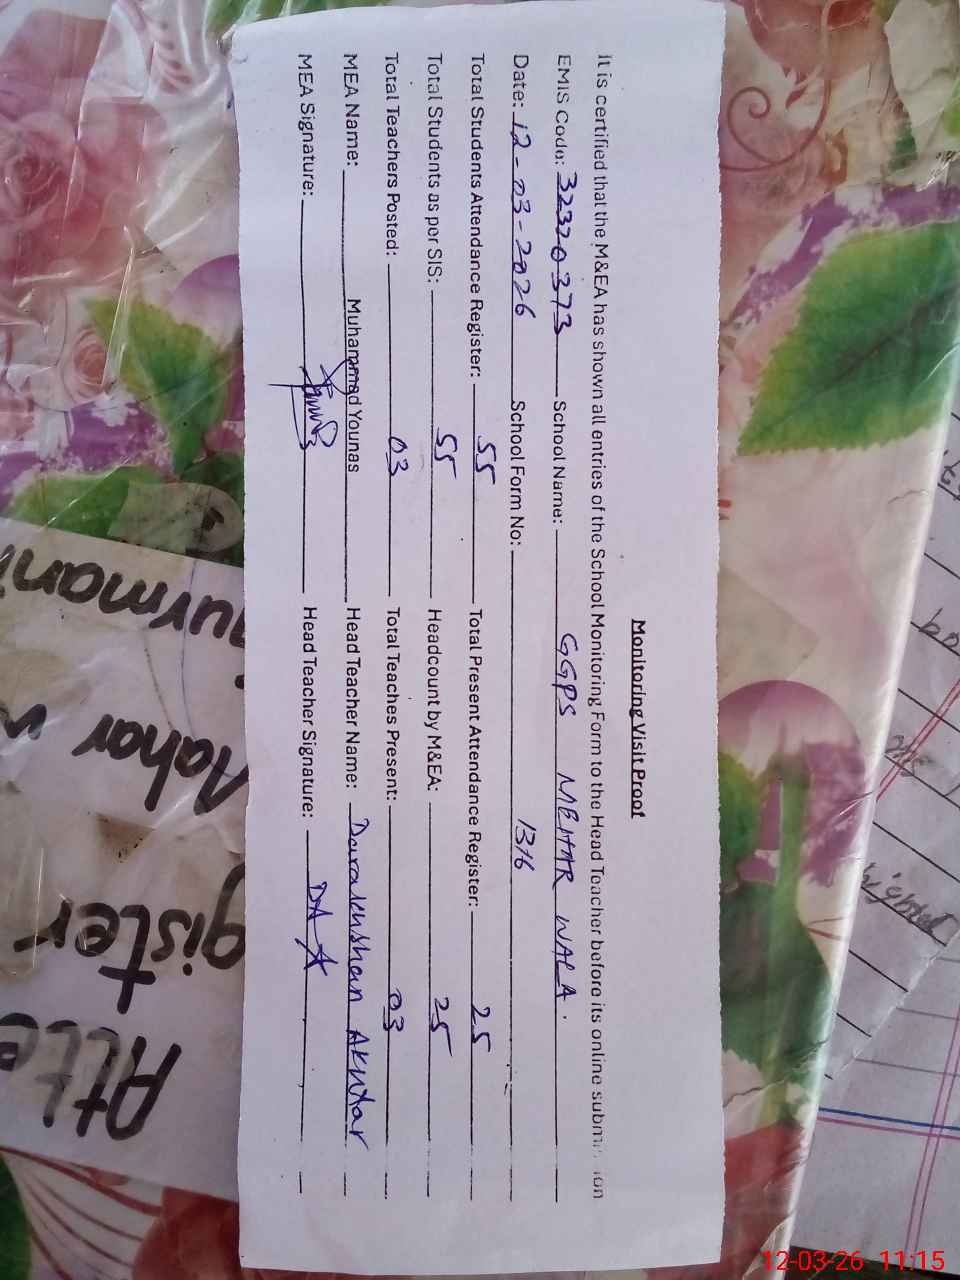 Monitoring Visit Proof
It is certified that the M&EA has shown all entries of the School Monitoring Form to the Head Teacher before its online submission
EMIS Code: 32320373 School Name: GGPS MEHAR WALA.
Date: 12-03-2026 School Form No: 1376
Total Students Attendance Register: 55 Total Present Attendance Register: 25
Total Students as per SIS: 55 Headcount by M&EA: 25
Total Teachers Posted: 03 Total Teaches Present: 03
MEA Name: Muhammad Younas Head Teacher Name: Darakhshan Akhtar
MEA Signature: Head Teacher Signature: DA
Atte
gister
Mahar W
12-03-26 11:15